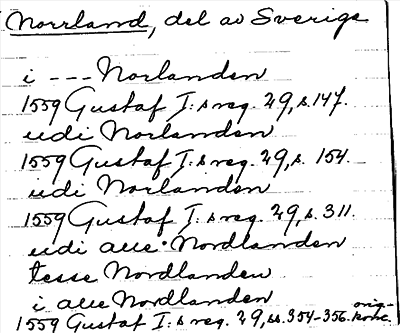 Norrland, del av Sverige
i --- Norlanden
1559 Gustaf I:s reg. 29, s. 147.
udi Norlanden
1559 Gustaf I:s reg. 29, s. 154.
udi Norlanden
1559 Gustaf I:s reg. 29, s. 311.
udi alle Nordlanden
tesse Nordlanden
i alle Nordlanden
1559 Gustaf I:s reg. 29, ss. 354-356. orig.-konc.